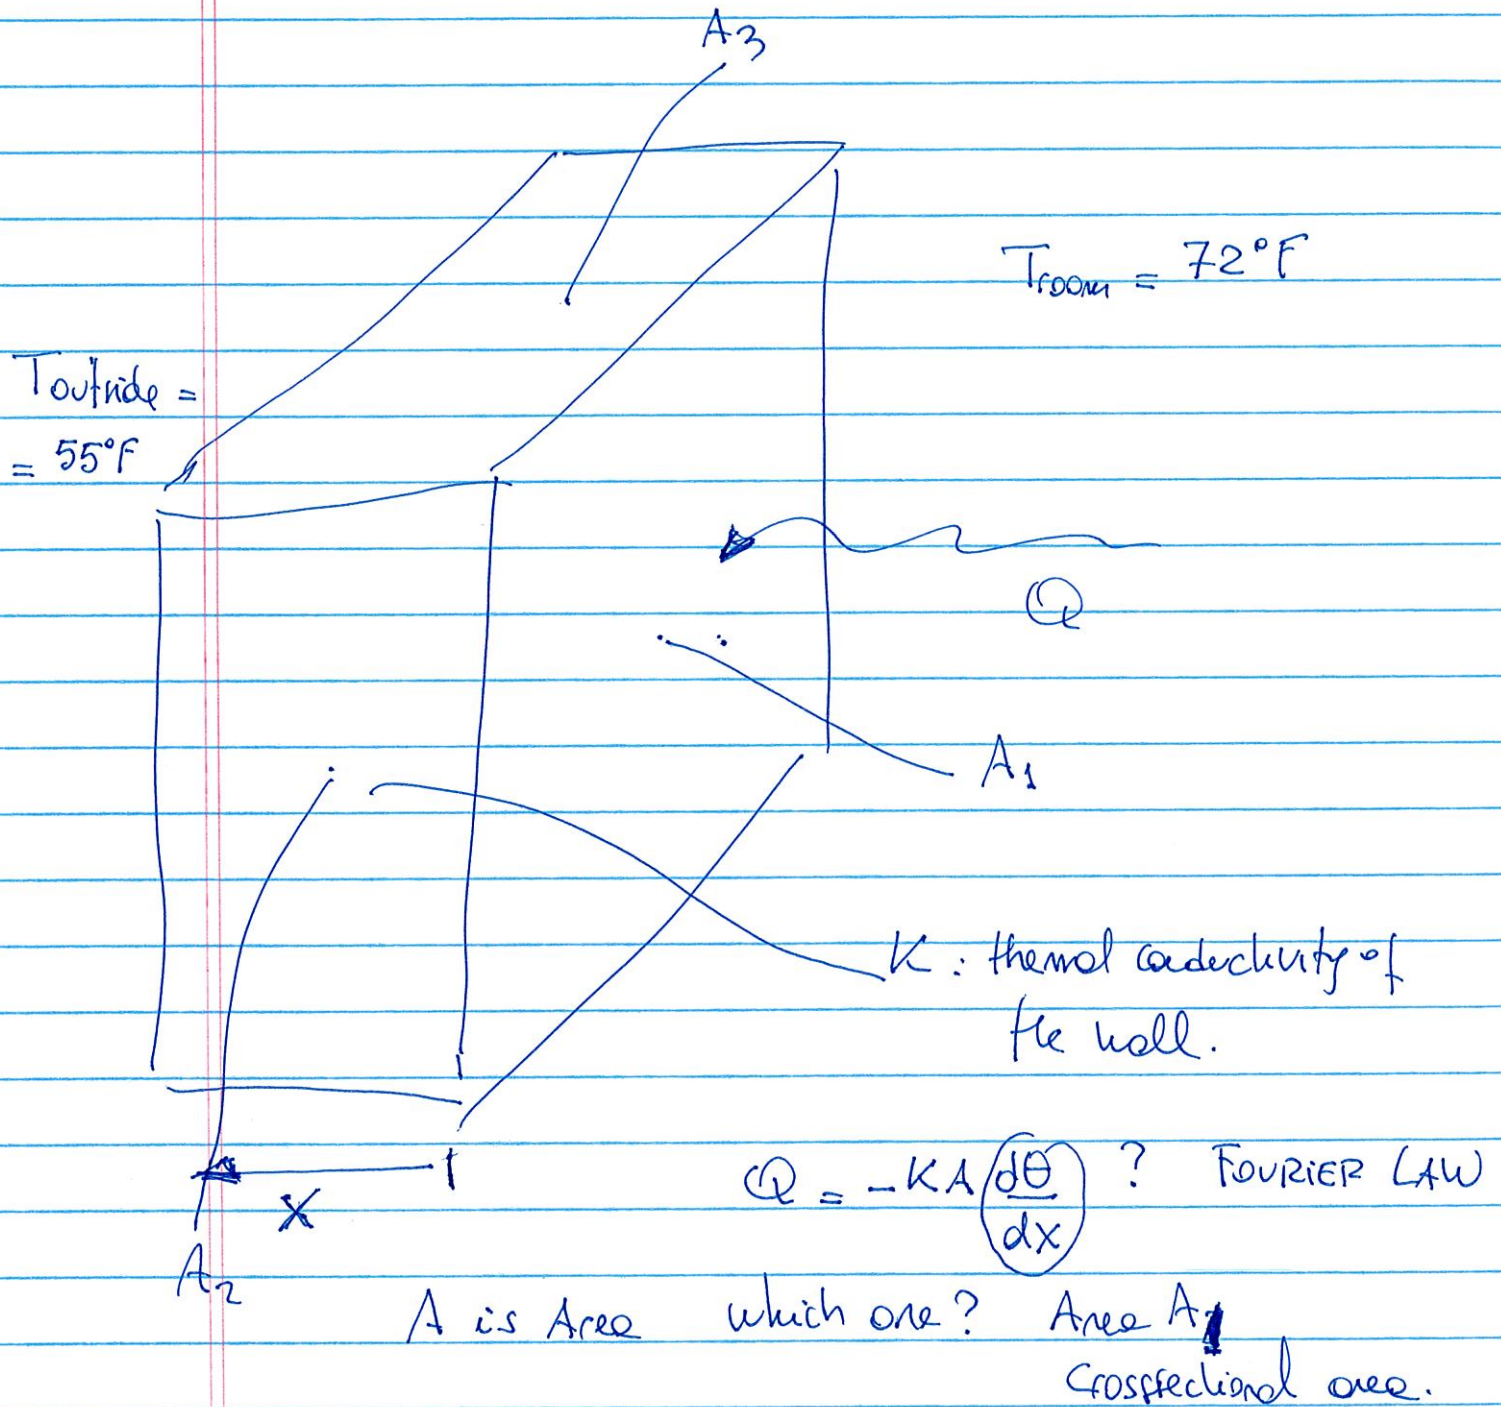 A3
Troom = 72°F
Toutside =
= 55°F
Q
A1
K : thermal conductivity of
the wall.
Q = -KA dθ/dx ? FOURIER LAW
X
A2
A is Area which one? Area A1
Crosssectional area.